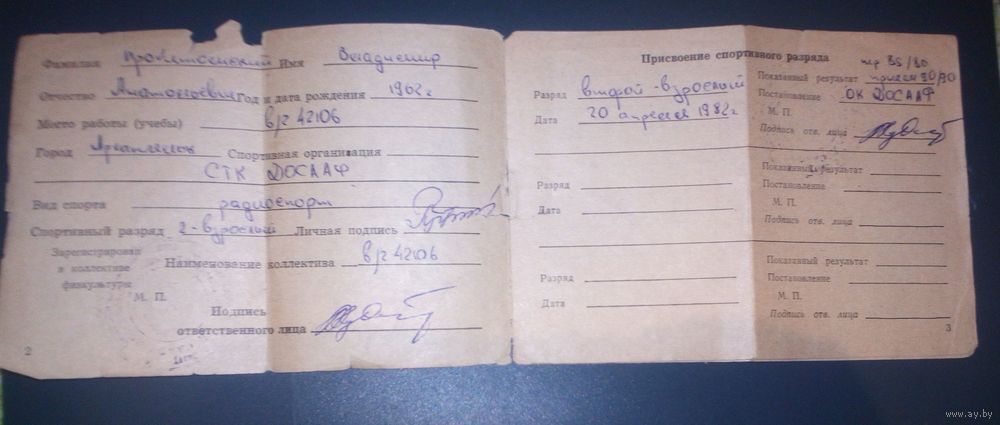 Фамилия Имя Владимир
Отчество Анатольевич Год и дата рождения 1962г
Место работы (учебы) в/г 42106
Город Спортивная организация
СТК ДОСААФ
Вид спорта радиоспорт
Спортивный разряд 2-взрослый Личная подпись
Зарегистрирован
в коллективе
физкультуры
Наименование коллектива в/г 42106
М. П.
Подпись
ответственного лица
2
Присвоение спортивного разряда
Разряд второй-взрослый
Дата 20 апреля 1982г
пер 85/80
Показанный результат прием 90/90
Постановление ОК ДОСААФ
М. П.
Подпись отв. лица
Разряд
Дата
Показанный результат
Постановление
М. П.
Подпись отв. лица
Разряд
Дата
Показанный результат
Постановление
М. П.
Подпись отв. лица
3
www.ay.by